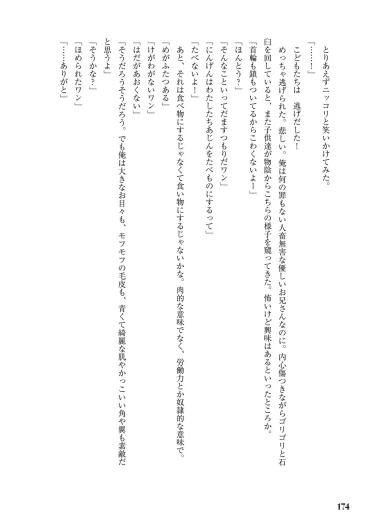 とりあえずニッコリと笑いかけてみた。
「……！」
こどもたちは　逃げだした！
めっちゃ逃げられた。悲しい。俺は何の罪もない人畜無害な優しいお兄さんなのに。内心傷つきながらゴリゴリと石
臼を回していると、また子供達が物陰からこちらの様子を窺ってきた。怖いけど興味はあるといったところか。
「首輪も鎖もついてるからこわくないよー」
「ほんとう？」
「そんなこといってだますつもりだワン」
「にんげんはわたしたちあじんをたべものにするって」
「たべないよ！」
あと、それは食べ物にするじゃなくて食い物にするじゃないかな。肉的な意味でなく、労働力とか奴隷的な意味で。
「めがふたつある」
「けがわがないワン」
「はだがあおくない」
「そうだろうそうだろう。でも俺は大きなお目々も、モフモフの毛皮も、青くて綺麗な肌やかっこいい角や翼も素敵だ
と思うよ」
「そうかな？」
「ほめられたワン」
「……ありがと」
174